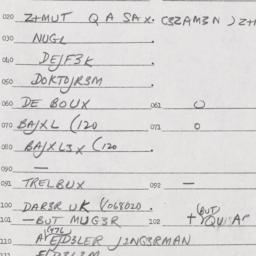 020 Z+MUT Q A SAX. C3ZAM3N ) Z+M
030 NUGL .
040 DEJF3K .
050 DOKTOJR3M .
060 DE BOUX 061 O
070 BAJXL (120 071 O
080 BAJXL3X (120 .
090 —
091 TRELBUX 092 —
100 DAR3R UK (/068020 .
101 —BUT MUG3R 102 + (BUT) QUI AP
110 A(476) EJD3LER JINGERMAN
111